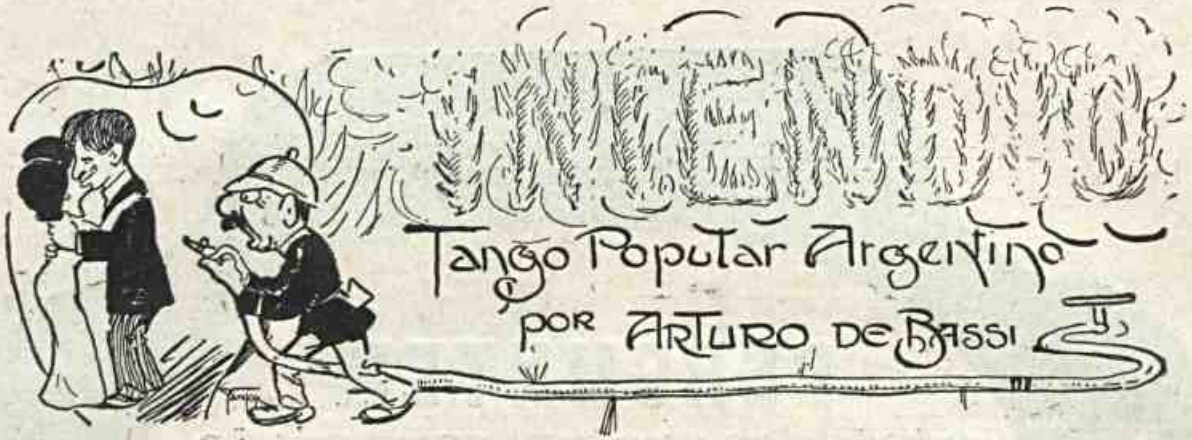 INCENDIO
Tango Popular Argentino
por ARTURO DE BASSI